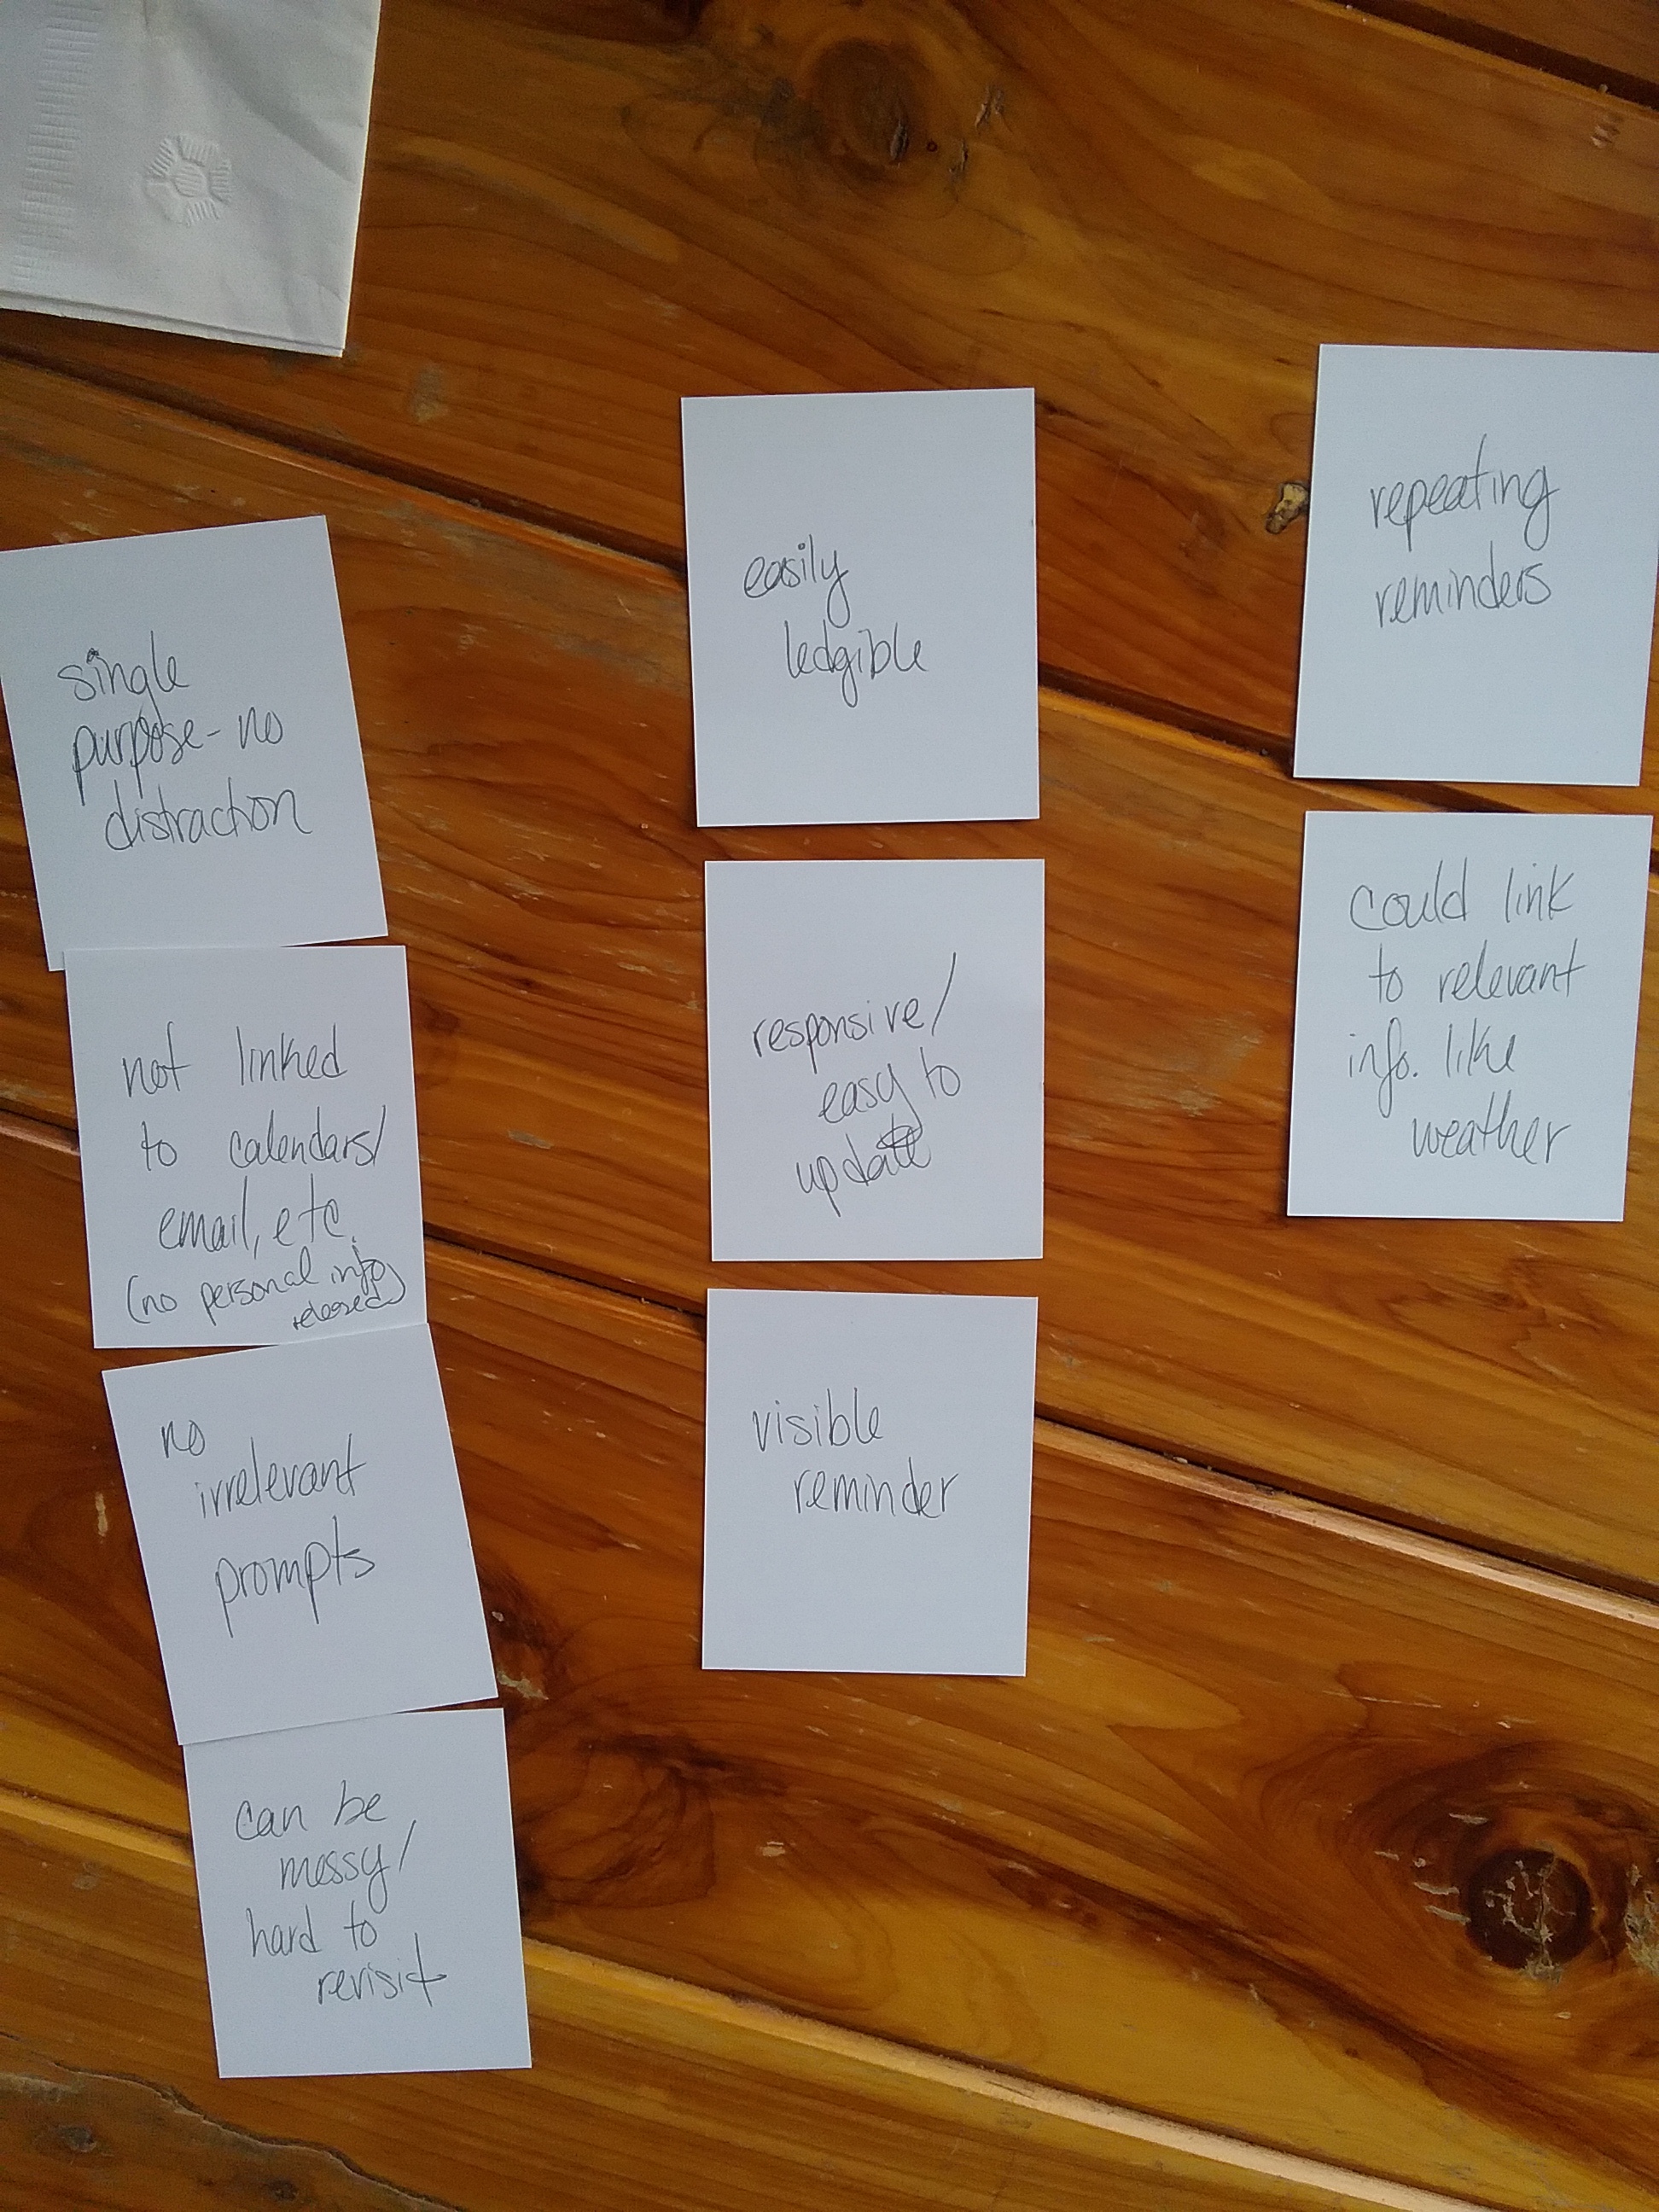 single
purpose- no
distraction
not linked
to calendars/
email, etc.
(no personal info
released)
no
irrelevant
prompts
can be
messy/
hard to
revisit
easily
ledgible
responsive/
easy to
update
visible
reminder
repeating
reminders
could link
to relevant
info. like
weather